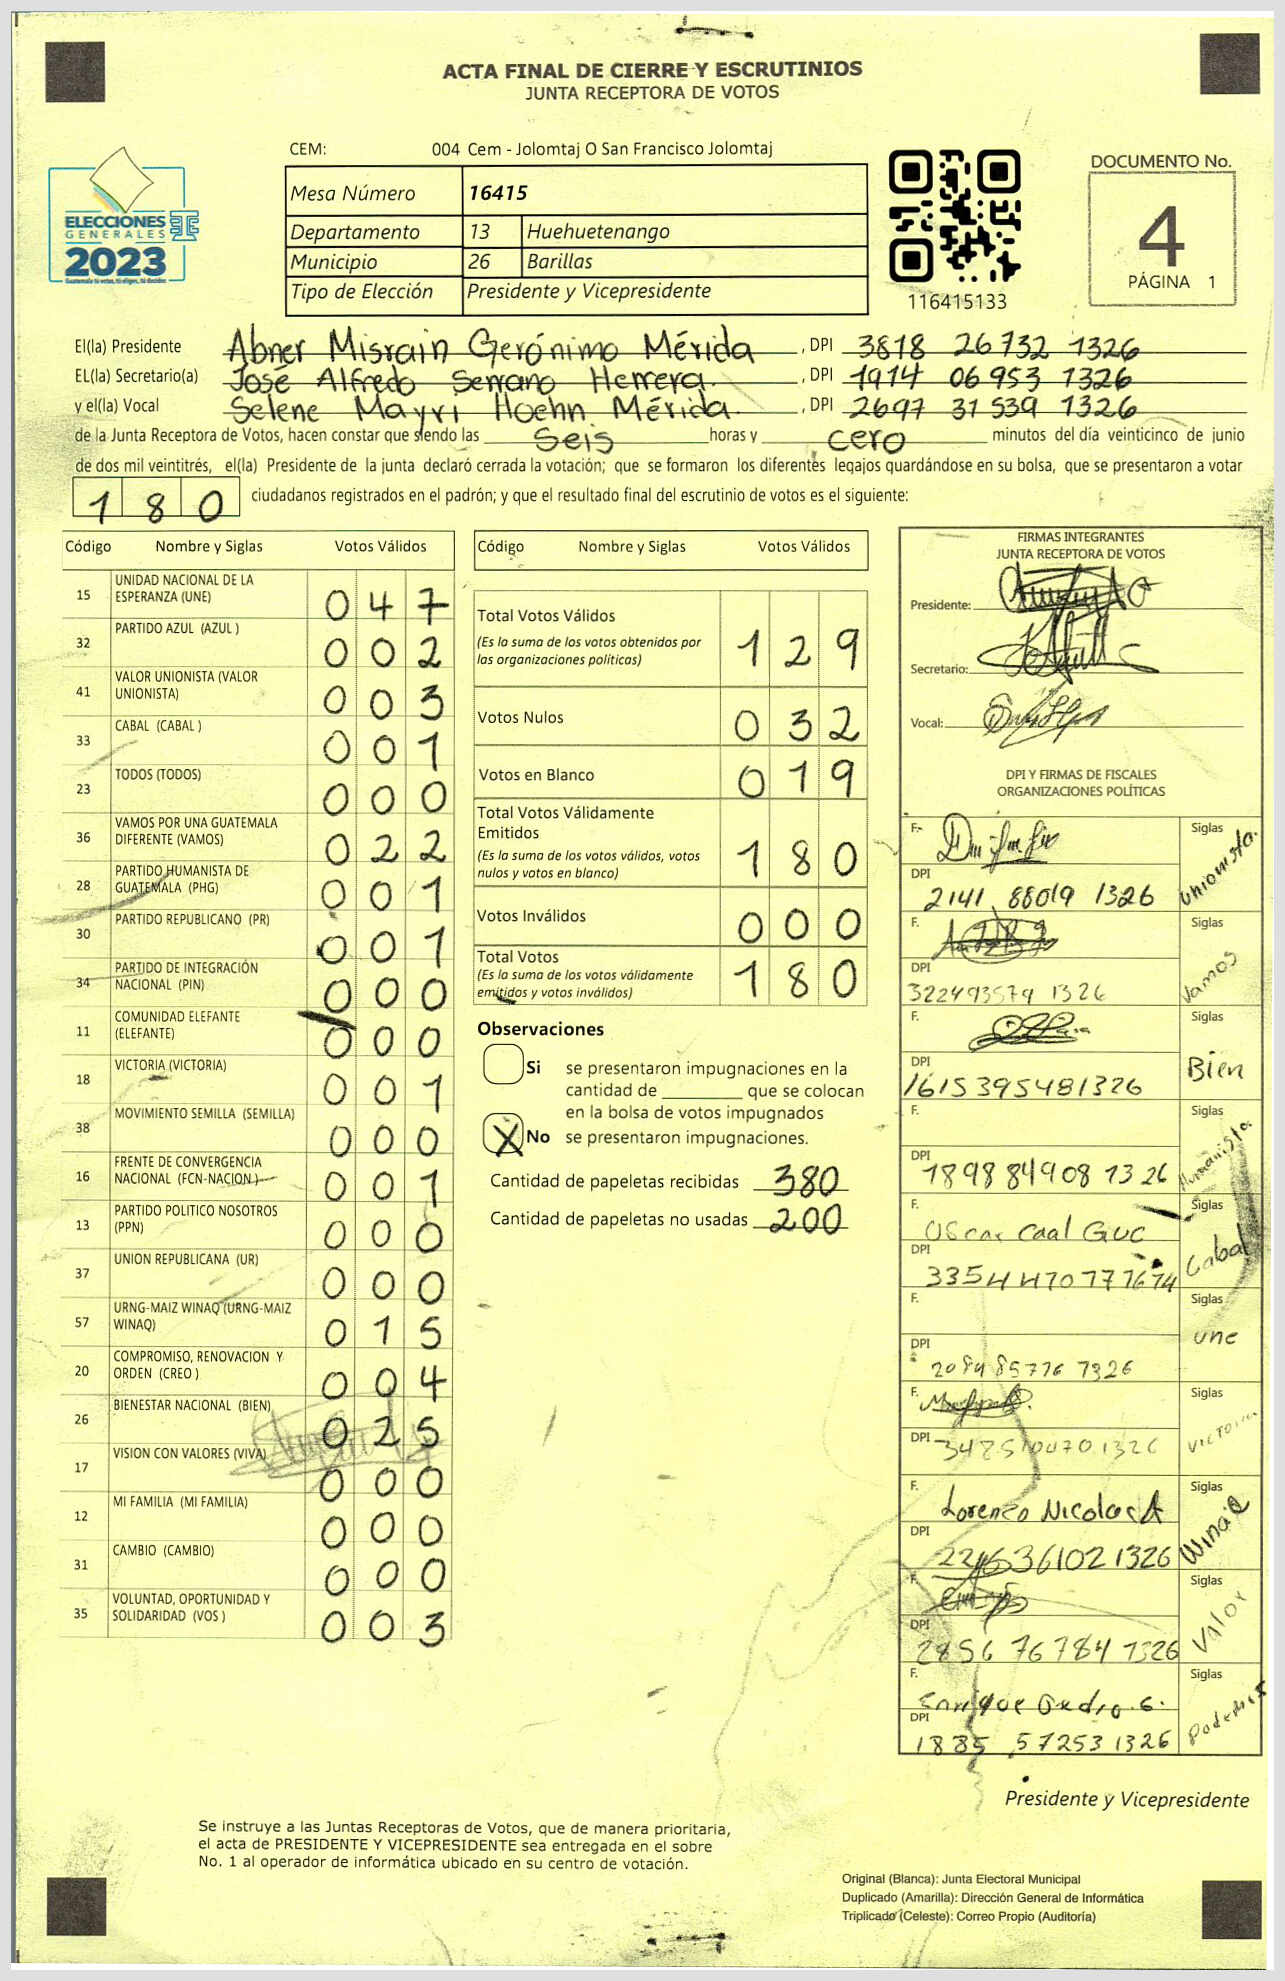 ACTA FINAL DE CIERRE Y ESCRUTINIOS
JUNTA RECEPTORA DE VOTOS
CEM: 004 Cem - Jolomtaj O San Francisco Jolomtaj
Mesa Número 16415
Departamento 13 Huehuetenango
Municipio 26 Barillas
Tipo de Elección Presidente y Vicepresidente
ELECCIONES
GENERALES
2023
116415133
DOCUMENTO No.
4
PÁGINA 1
El(la) Presidente Abner Misrain Gerónimo Mérida , DPI 3818 26732 1326
EL(la) Secretario(a) José Alfredo Serrano Herrera. , DPI 1914 06953 1326
y el(la) Vocal Selene Mayri Hoehn Mérida. , DPI 2697 31539 1326
de la Junta Receptora de Votos, hacen constar que siendo las Seis horas y cero minutos del día veinticinco de junio
de dos mil veintitrés, el(la) Presidente de la junta declaró cerrada la votación; que se formaron los diferentes legajos guardándose en su bolsa, que se presentaron a votar
180 ciudadanos registrados en el padrón; y que el resultado final del escrutinio de votos es el siguiente:
Código Nombre y Siglas Votos Válidos
15 UNIDAD NACIONAL DE LA ESPERANZA (UNE) 047
32 PARTIDO AZUL (AZUL ) 002
41 VALOR UNIONISTA (VALOR UNIONISTA) 003
33 CABAL (CABAL ) 001
23 TODOS (TODOS) 000
36 VAMOS POR UNA GUATEMALA DIFERENTE (VAMOS) 022
28 PARTIDO HUMANISTA DE GUATEMALA (PHG) 001
30 PARTIDO REPUBLICANO (PR) 001
34 PARTIDO DE INTEGRACIÓN NACIONAL (PIN) 000
11 COMUNIDAD ELEFANTE (ELEFANTE) 000
18 VICTORIA (VICTORIA) 001
38 MOVIMIENTO SEMILLA (SEMILLA) 000
16 FRENTE DE CONVERGENCIA NACIONAL (FCN-NACION) 001
13 PARTIDO POLITICO NOSOTROS (PPN) 000
37 UNION REPUBLICANA (UR) 000
57 URNG-MAIZ WINAQ (URNG-MAIZ WINAQ) 015
20 COMPROMISO, RENOVACION Y ORDEN (CREO ) 004
26 BIENESTAR NACIONAL (BIEN) 025
17 VISION CON VALORES (VIVA) 000
12 MI FAMILIA (MI FAMILIA) 000
31 CAMBIO (CAMBIO) 000
35 VOLUNTAD, OPORTUNIDAD Y SOLIDARIDAD (VOS ) 003
Código Nombre y Siglas Votos Válidos
Total Votos Válidos 129
(Es la suma de los votos obtenidos por
las organizaciones políticas)
Votos Nulos 032
Votos en Blanco 019
Total Votos Válidamente
Emitidos 180
(Es la suma de los votos válidos, votos
nulos y votos en blanco)
Votos Inválidos 000
Total Votos 180
(Es la suma de los votos válidamente
emitidos y votos inválidos)
Observaciones
Si se presentaron impugnaciones en la
cantidad de que se colocan
en la bolsa de votos impugnados
X No se presentaron impugnaciones.
Cantidad de papeletas recibidas 380
Cantidad de papeletas no usadas 200
FIRMAS INTEGRANTES
JUNTA RECEPTORA DE VOTOS
Presidente:
Secretario:
Vocal:
DPI Y FIRMAS DE FISCALES
ORGANIZACIONES POLÍTICAS
F. Siglas Unionista
DPI 2141 88019 1326
F. Siglas Vamos
DPI 322493579 1326
F. Siglas Bien
DPI 1615395481326
F. Siglas Humanista
DPI 189884908 1326
F. Oscar Caal Guc Siglas Cabal
DPI
F. Siglas une
DPI
F. Siglas Victoria
DPI
F. Siglas Winaq
DPI
F. Siglas Valor
DPI 2856 76784 1326
F. Enrique Pedro G. Siglas Podemos
DPI 1885 57253 1326
Presidente y Vicepresidente
Se instruye a las Juntas Receptoras de Votos, que de manera prioritaria,
el acta de PRESIDENTE Y VICEPRESIDENTE sea entregada en el sobre
No. 1 al operador de informática ubicado en su centro de votación.
Original (Blanca): Junta Electoral Municipal
Duplicado (Amarilla): Dirección General de Informática
Triplicado (Celeste): Correo Propio (Auditoría)